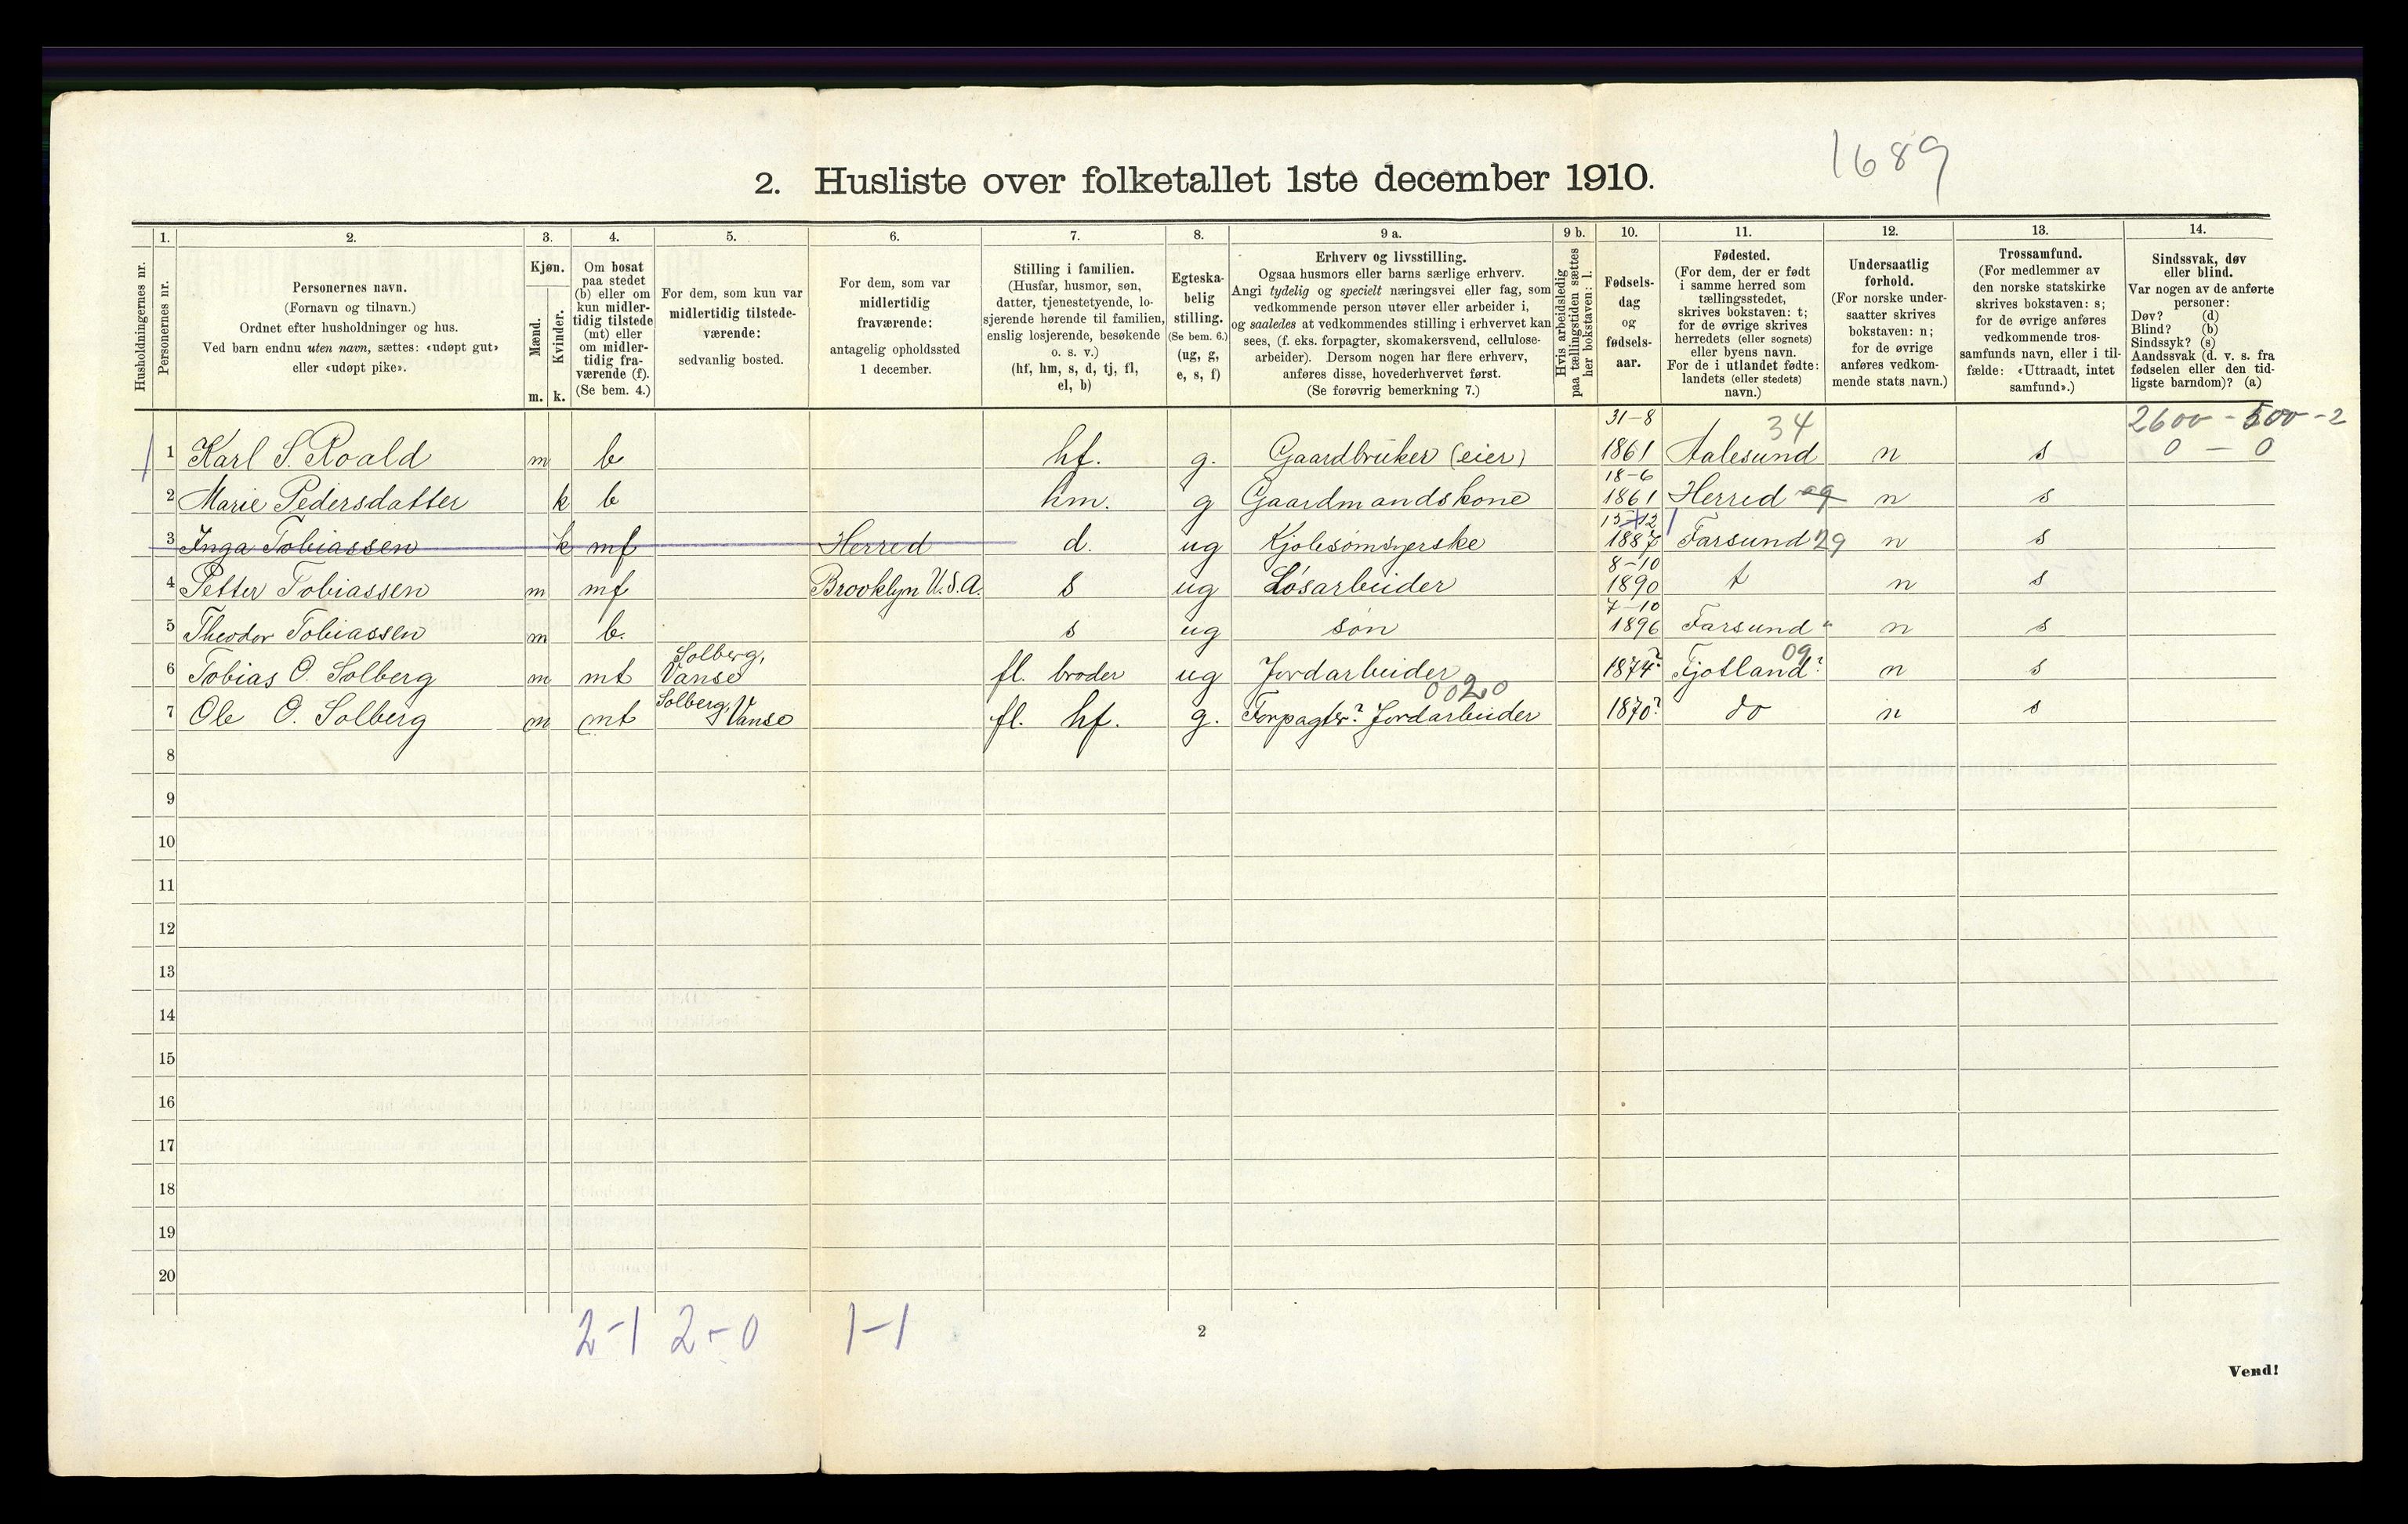 1689
2. Husliste over folketallet 1ste december 1910.
Husholdningernes nr.
1. Personernes nr.
2. Personernes navn.
(Fornavn og tilnavn.)
Ordnet efter husholdninger og hus.
Ved barn endnu uten navn, sættes: «udøpt gut»
eller «udøpt pike».
3. Kjøn.
Mænd. Kvinder.
m. k.
4. Om bosat
paa stedet
(b) eller om
kun midler-
tidig tilstede
(mt) eller
om midler-
tidig fra-
værende (f).
(Se bem. 4.)
5. For dem, som kun var
midlertidig tilstede-
værende:
sedvanlig bosted.
6. For dem, som var
midlertidig
fraværende:
antagelig opholdssted
1 december.
7. Stilling i familien.
(Husfar, husmor, søn,
datter, tjenestetyende, lo-
sjerende hørende til familien,
enslig losjerende, besøkende
o. s. v.)
(hf, hm, s, d, tj, fl,
el, b)
8. Egteska-
belig
stilling.
(Se bem. 6.)
(ug, g,
e, s, f)
9 a. Erhverv og livsstilling.
Ogsaa husmors eller barns særlige erhverv.
Angi tydelig og specielt næringsvei eller fag, som
vedkommende person utøver eller arbeider i,
og saaledes at vedkommendes stilling i erhvervet kan
sees, (f. eks. forpagter, skomakersvend, cellulose-
arbeider). Dersom nogen har flere erhverv,
anføres disse, hovederhvervet først.
(Se forøvrig bemerkning 7.)
9 b. Hvis arbeidsledig
paa tællingstiden sættes
her bokstaven: l.
10. Fødsels-
dag
og
fødsels-
aar.
11. Fødested.
(For dem, der er født
i samme herred som
tællingsstedet,
skrives bokstaven: t;
for de øvrige skrives
herredets (eller sognets)
eller byens navn.
For de i utlandet fødte:
landets (eller stedets)
navn.)
12. Undersaatlig
forhold.
(For norske under-
saatter skrives
bokstaven: n;
for de øvrige
anføres vedkom-
mende stats navn.)
13. Trossamfund.
(For medlemmer av
den norske statskirke
skrives bokstaven: s;
for de øvrige anføres
vedkommende tros-
samfunds navn, eller i til-
fælde: «Uttraadt, intet
samfund».)
14. Sindssvak, døv
eller blind.
Var nogen av de anførte
personer:
Døv? (d)
Blind? (b)
Sindssyk? (s)
Aandssvak (d. v. s. fra
fødselen eller den tid-
ligste barndom)? (a)
31-8 34 2600 - 500 - 2
1 Karl S. Roald m b hf. g. Gaardbruker (eier) 1861 Aalesund n s 0 - 0
18-6
2 Marie Pedersdatter k b hm. g Gaardmandskone 1861 Herred n s
13-12
3 Inga Tobiassen k mf Herred d. ug Kjolesømsyerske 1887 Farsund 29 n s
8-10
4 Petter Tobiassen m mf Brooklyn U.S.A. s ug Løsarbeider 1890 t n s
7-10
5 Theodor Tobiassen m b. s ug søn 1896 Farsund " n s
Solberg, 09
6 Tobias O. Solberg m mt Vanse fl. broder ug Jordarbeider 1874? Fjotland? n s
Solberg, 0020
7 Ole O. Solberg m mt Vanse fl. hf. g. Forpagter? Jordarbeider 1870? do n s
8
9
10
11
12
13
14
15
16
17
18
19
20
2-1 2-0 1-1
2
Vend!